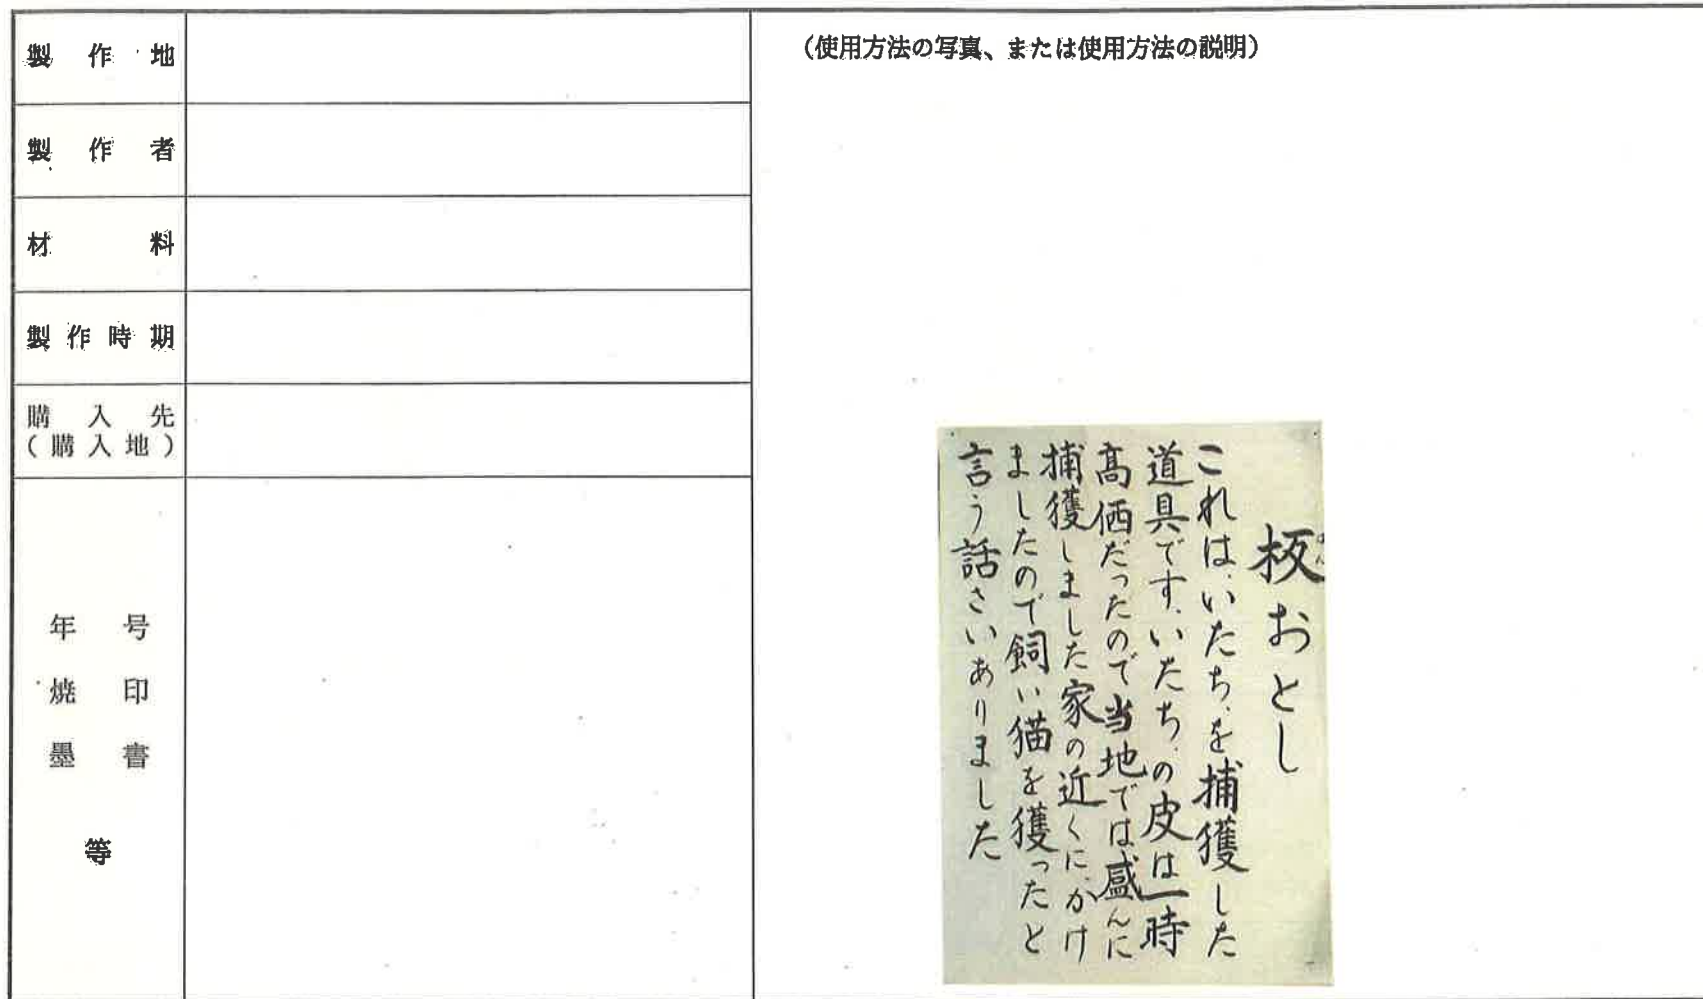 製作地
製作者
材料
製作時期
購入先
(購入地)
年号
焼印
墨書
等
(使用方法の写真、または使用方法の説明)
板おとし
これは、いたち、を捕獲した
道具です、いたち、の皮は一時
高価だったので当地では盛んに
捕獲しました家の近くに、かけ
ましたので飼い猫を獲ったと
言う話さいありました